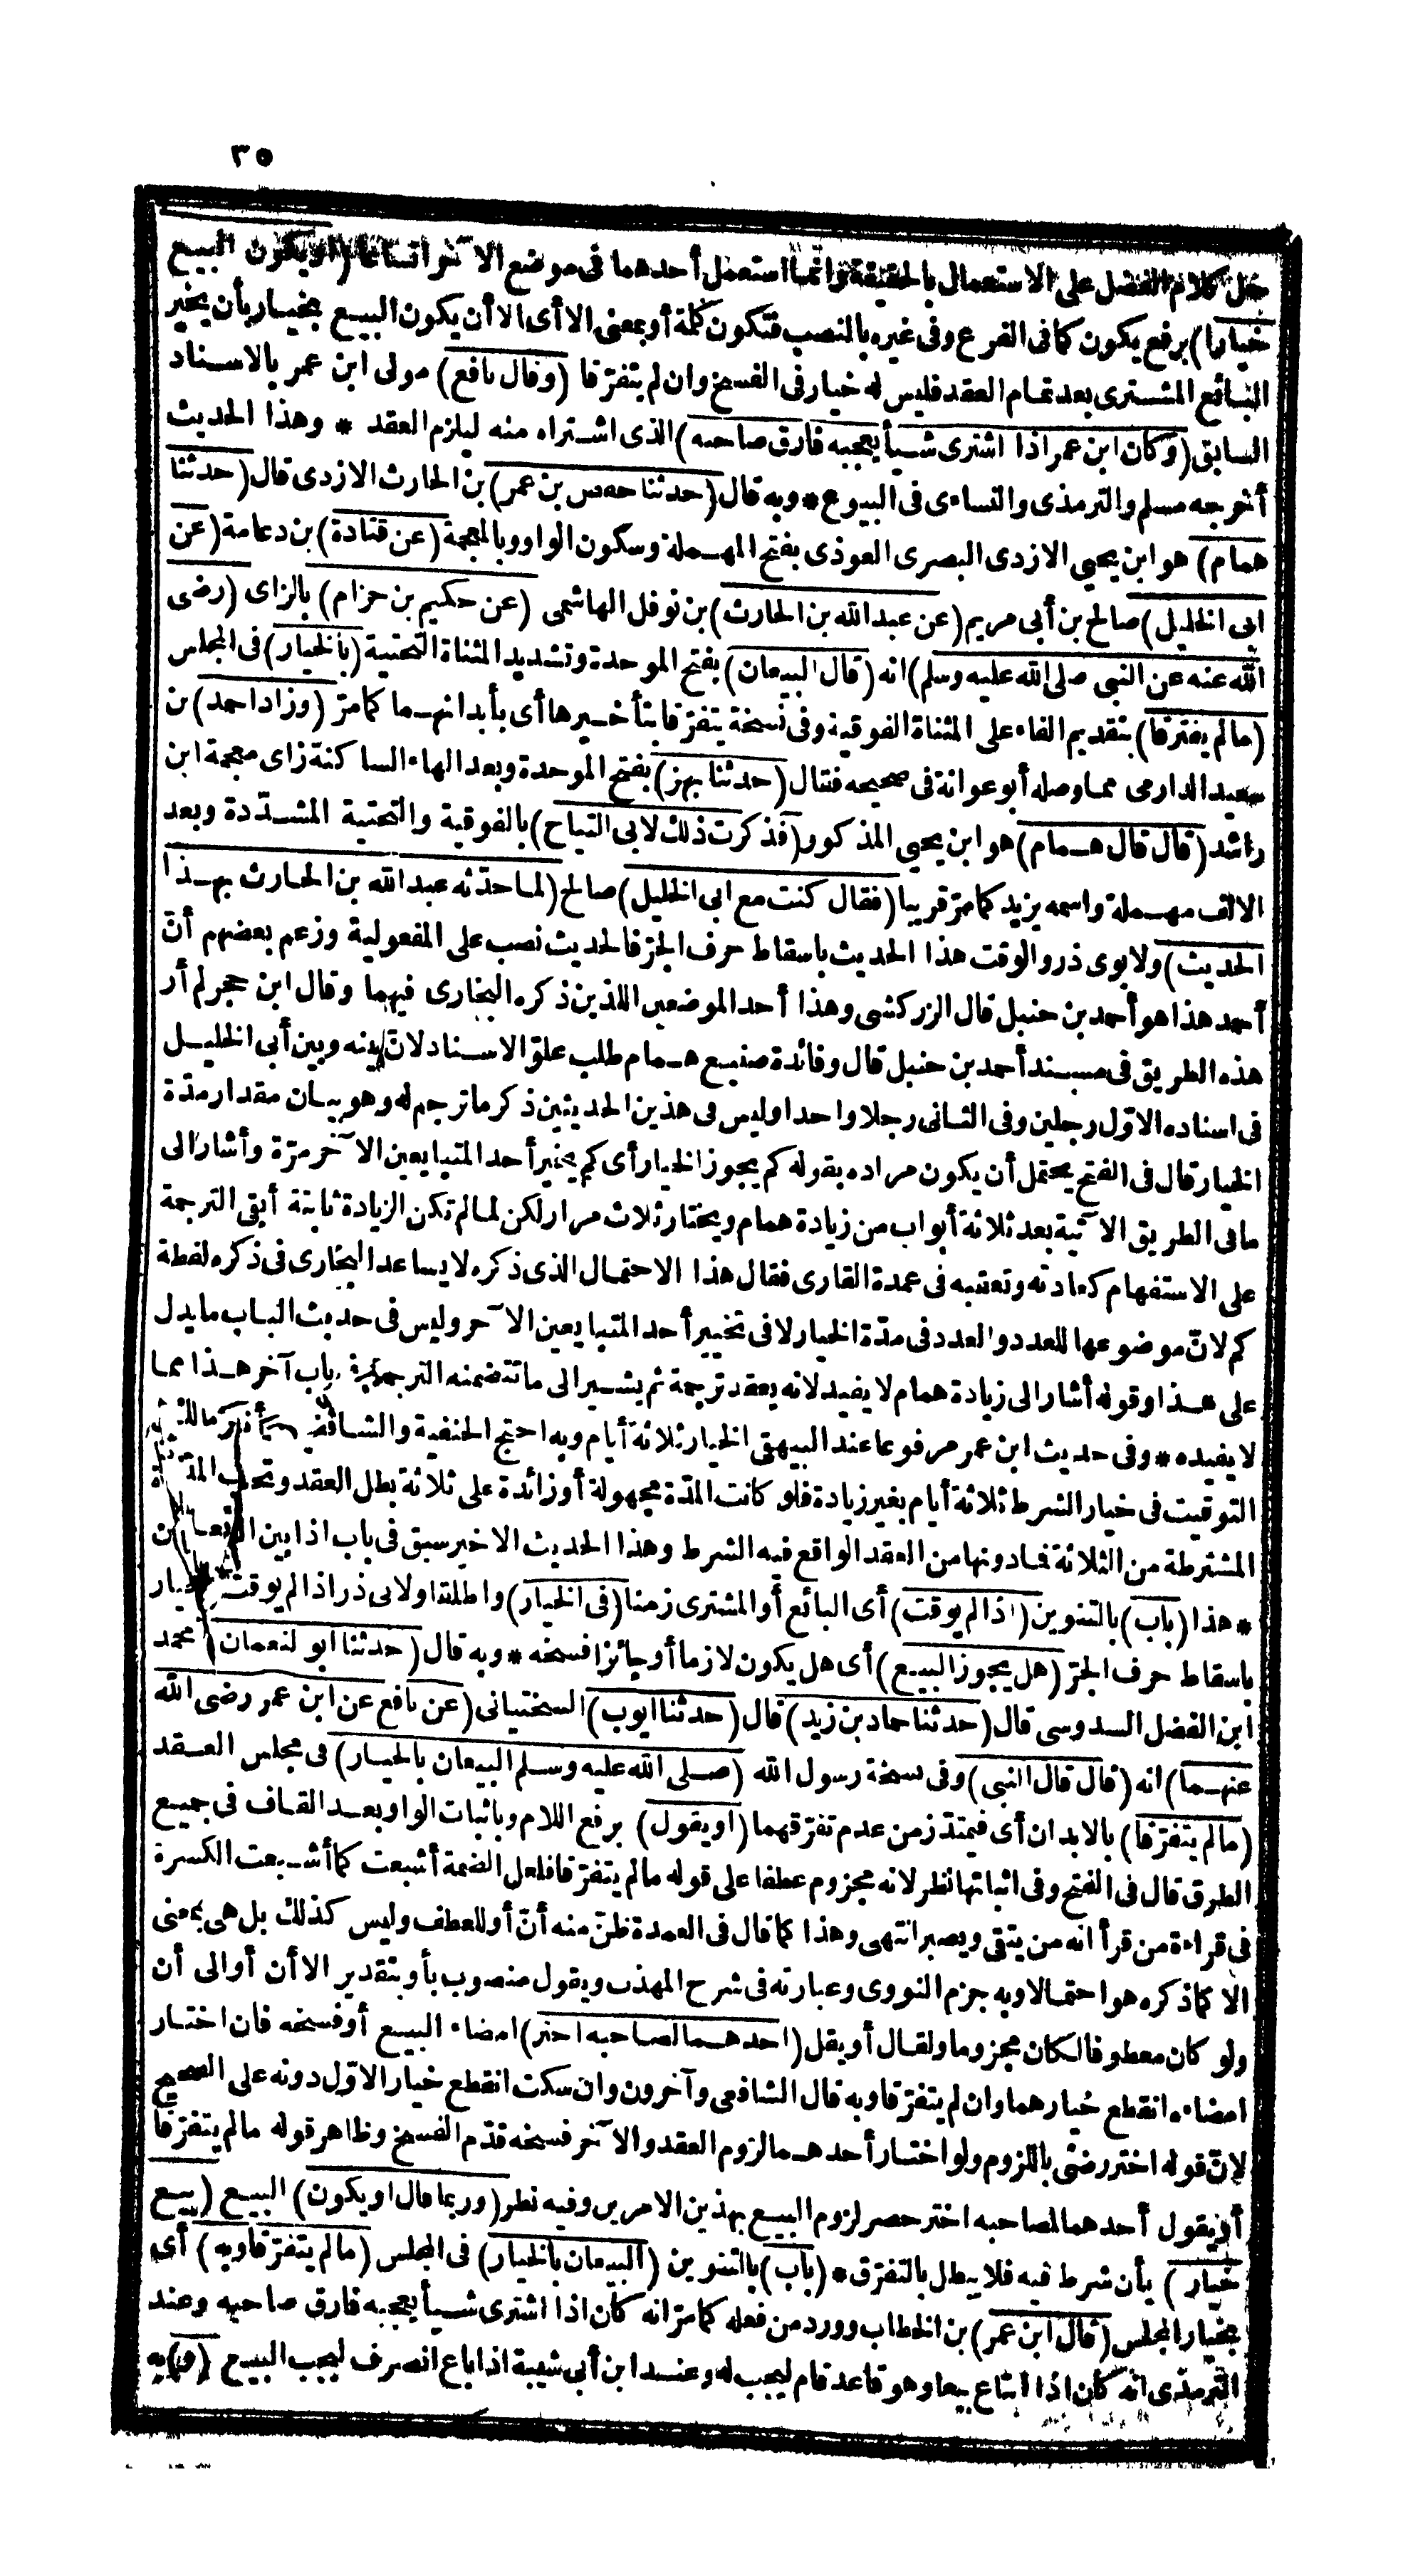 ٣٥
حمل كلام المفضل على الاستعمال بالحقيقة وانما استعمل أحدهما فى موضع الآخر اتساعا (أو يكون البيع
خيارا) برفع يكون كما فى الفرع وفى غيره بالنصب فتكون كلمة أو بمعنى الا أى الا أن يكون البيع بخيار بأن يخير
البائع المشترى بعد تمام العقد فليس له خيار فى الفسخ وان لم يتفرّقا (وقال نافع) مولى ابن عمر بالاسناد
السابق (وكان ابن عمر اذا اشترى شيأ يعجبه فارق صاحبه) الذى اشتراه منه ليلزم العقد * وهذا الحديث
أخرجه مسلم والترمذى والنساءى فى البيوع * وبه قال (حدثنا حفص بن عمر) بن الحارث الازدى قال (حدثنا
همام) هو ابن يحيى الازدى البصرى العوذى بفتح المهملة وسكون الواو وبالمعجمة (عن قتادة) بن دعامة (عن
ابى الخليل) صالح بن أبى مريم (عن عبد الله بن الحارث) بن نوفل الهاشمى (عن حكيم بن حزام) بالزاى (رضى
الله عنه عن النبى صلى الله عليه وسلم) انه (قال البيعان) بفتح الموحدة وتشديد المثناة التحتية (بالخيار) فى المجلس
(مالم يفترقا) بتقديم الفاء على المثناة الفوقية وفى نسخة يتفرّقا بتأخيرها أى بأبدانهما كما مرّ (وزاد احمد) بن
سعيد الدارمى مما وصله أبو عوانة فى صحيحه فقال (حدثنا بهز) بفتح الموحدة وبعد الهاء الساكنة زاى معجمة ابن
راشد (قال قال همام) هو ابن يحيى المذكور (فذكرت ذلك لابى التياح) بالفوقية والتحتية المشدّدة وبعد
الالف مهملة واسمه يزيد كما مرّ قريبا (فقال كنت مع ابى الخليل) صالح (لما حدّثه عبد الله بن الحارث بهذا
الحديث) ولابوى ذر والوقت هذا الحديث باسقاط حرف الجرّ فالحديث نصب على المفعولية وزعم بعضهم أنّ
أحمد هذا هو أحمد بن حنبل قال الزركشى وهذا أحد الموضعين اللذين ذكره البخارى فيهما وقال ابن حجر لم أر
هذه الطريق فى مسند أحمد بن حنبل قال وفائدة صنيع همام طلب علوّ الاسناد لانّ بينه وبين أبى الخليل
فى اسناده الاوّل رجلين وفى الثانى رجلا واحدا وليس فى هذين الحديثين ذكر ما ترجم له وهو بيان مقدار مدّة
الخيار قال فى الفتح يحتمل أن يكون مراده بقوله كم يجوز الخيار أى كم يخير أحد المتبايعين الآخر مرّة وأشار الى
ما فى الطريق الآتية بعد ثلاثة أبواب من زيادة همام ويختار ثلاث مرار لكن لما لم تكن الزيادة ثابتة أبقى الترجمة
على الاستفهام كعادته وتعقبه فى عمدة القارى فقال هذا الاحتمال الذى ذكره لا يساعد البخارى فى ذكره لفظة
كم لانّ موضوعها للعدد والعدد فى مدّة الخيار لا فى تخيير أحد المتبايعين الآخر وليس فى حديث الباب ما يدل
على هذا وقوله أشار الى زيادة همام لا يفيد لانه يعقد ترجمة ثم يشير الى ما تتضمنه الترجمة باب آخر هذا مما
لا يفيده * وفى حديث ابن عمر مرفوعا عند البيهقى الخيار ثلاثة أيام وبه احتج الحنفية والشافعية
التوقيت فى خيار الشرط ثلاثة أيام بغير زيادة فلو كانت المدّة مجهولة أو زائدة على ثلاثة بطل العقد وتحسب المدّة
المشترطة من الثلاثة فما دونها من العقد الواقع فيه الشرط وهذا الحديث الاخير سبق فى باب اذا بين البيعان
* هذا (باب) بالتنوين (اذا لم يوقت) أى البائع أو المشترى زمنا (فى الخيار) واطلقا ولابى ذر اذا لم يوقت الخيار
باسقاط حرف الجرّ (هل يجوز البيع) أى هل يكون لازما أو جائزا فسخه * وبه قال (حدثنا ابو النعمان) محمد
ابن الفضل السدوسى قال (حدثنا حماد بن زيد) قال (حدثنا ايوب) السختيانى (عن نافع عن ابن عمر رضى الله
عنهما) انه (قال قال النبى) وفى نسخة رسول الله (صلى الله عليه وسلم البيعان بالخيار) فى مجلس العقد
(مالم يتفرّقا) بالابدان أى فيمتدّ زمن عدم تفرّقهما (او يقول) برفع اللام وباثبات الواو بعد القاف فى جميع
الطرق قال فى الفتح وفى اثباتها نظر لانه مجزوم عطفا على قوله مالم يتفرّقا فلعل الضمة أشبعت كما أشبعت الكسرة
فى قراءة من قرأ انه من يتقى ويصبر انتهى وهذا كما قال فى العمدة ظنّ منه أنّ أو للعطف وليس كذلك بل هى بمعنى
الا كما ذكره هو احتمالا وبه جزم النووى وعبارته فى شرح المهذب ويقول منصوب بأو بتقدير الا أن أو الى أن
ولو كان معطوفا لكان مجزوما ولقال أو يقل (احدهما لصاحبه اختر) امضاء البيع أو فسخه فان اختار
امضاءه انقطع خيارهما وان لم يتفرّقا وبه قال الشافعى وآخرون وان سكت انقطع خيار الاوّل دونه على الصحيح
لانّ قوله اختر رضى باللزوم ولو اختار أحدهما لزوم العقد والآخر فسخه قدّم الفسخ وظاهر قوله مالم يتفرّقا
أو يقول أحدهما لصاحبه اختر حصر لزوم البيع بهذين الامرين وفيه نظر (وربما قال او يكون) البيع (بيع
خيار) بأن شرط فيه فلا يبطل بالتفرّق * (باب) بالتنوين (البيعان بالخيار) فى المجلس (مالم يتفرّقا وبه) أى
بخيار المجلس (قال ابن عمر) بن الخطاب وورد من فعله كما مرّ انه كان اذا اشترى شيأ يعجبه فارق صاحبه وعند
الترمذى انه كان اذا ابتاع بيعا وهو قاعد قام ليجب له وعند ابن أبى شيبة اذا باع انصرف ليجب البيع (و) به